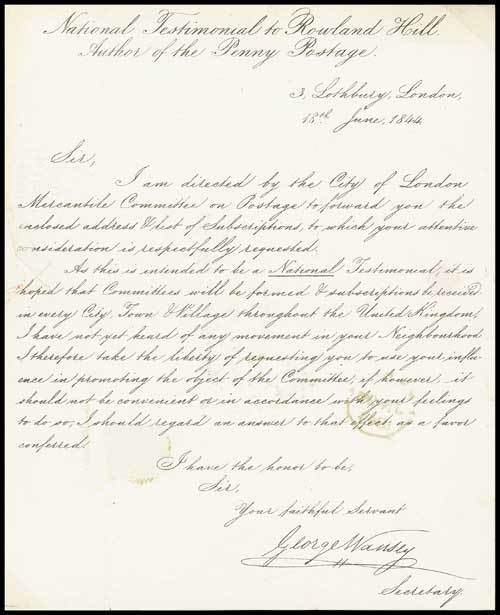 National Testimonial to Rowland Hill.
Author of the Penny Postage.
3, Lothbury, London,
18th June, 1844.
Sir,
I am directed by the City of London
Mercantile Committee on Postage to forward you the
inclosed address & list of Subscriptions, to which your attentive
consideration is respectfully requested.
As this is intended to be a National Testimonial, it is
hoped that Committees will be formed & subscriptions be received
in every City, Town & Village throughout the United Kingdom,
I have not yet heard of any movement in your Neighbourhood
I therefore take the liberty of requesting you to use your influ-
ence in promoting the object of the Committee, if however, it
should not be convenient or in accordance with your feelings
to do so, I should regard an answer to that effect as a favor
conferred.
I have the honor to be,
Sir,
Your faithful Servant
George Wansey
Secretary.